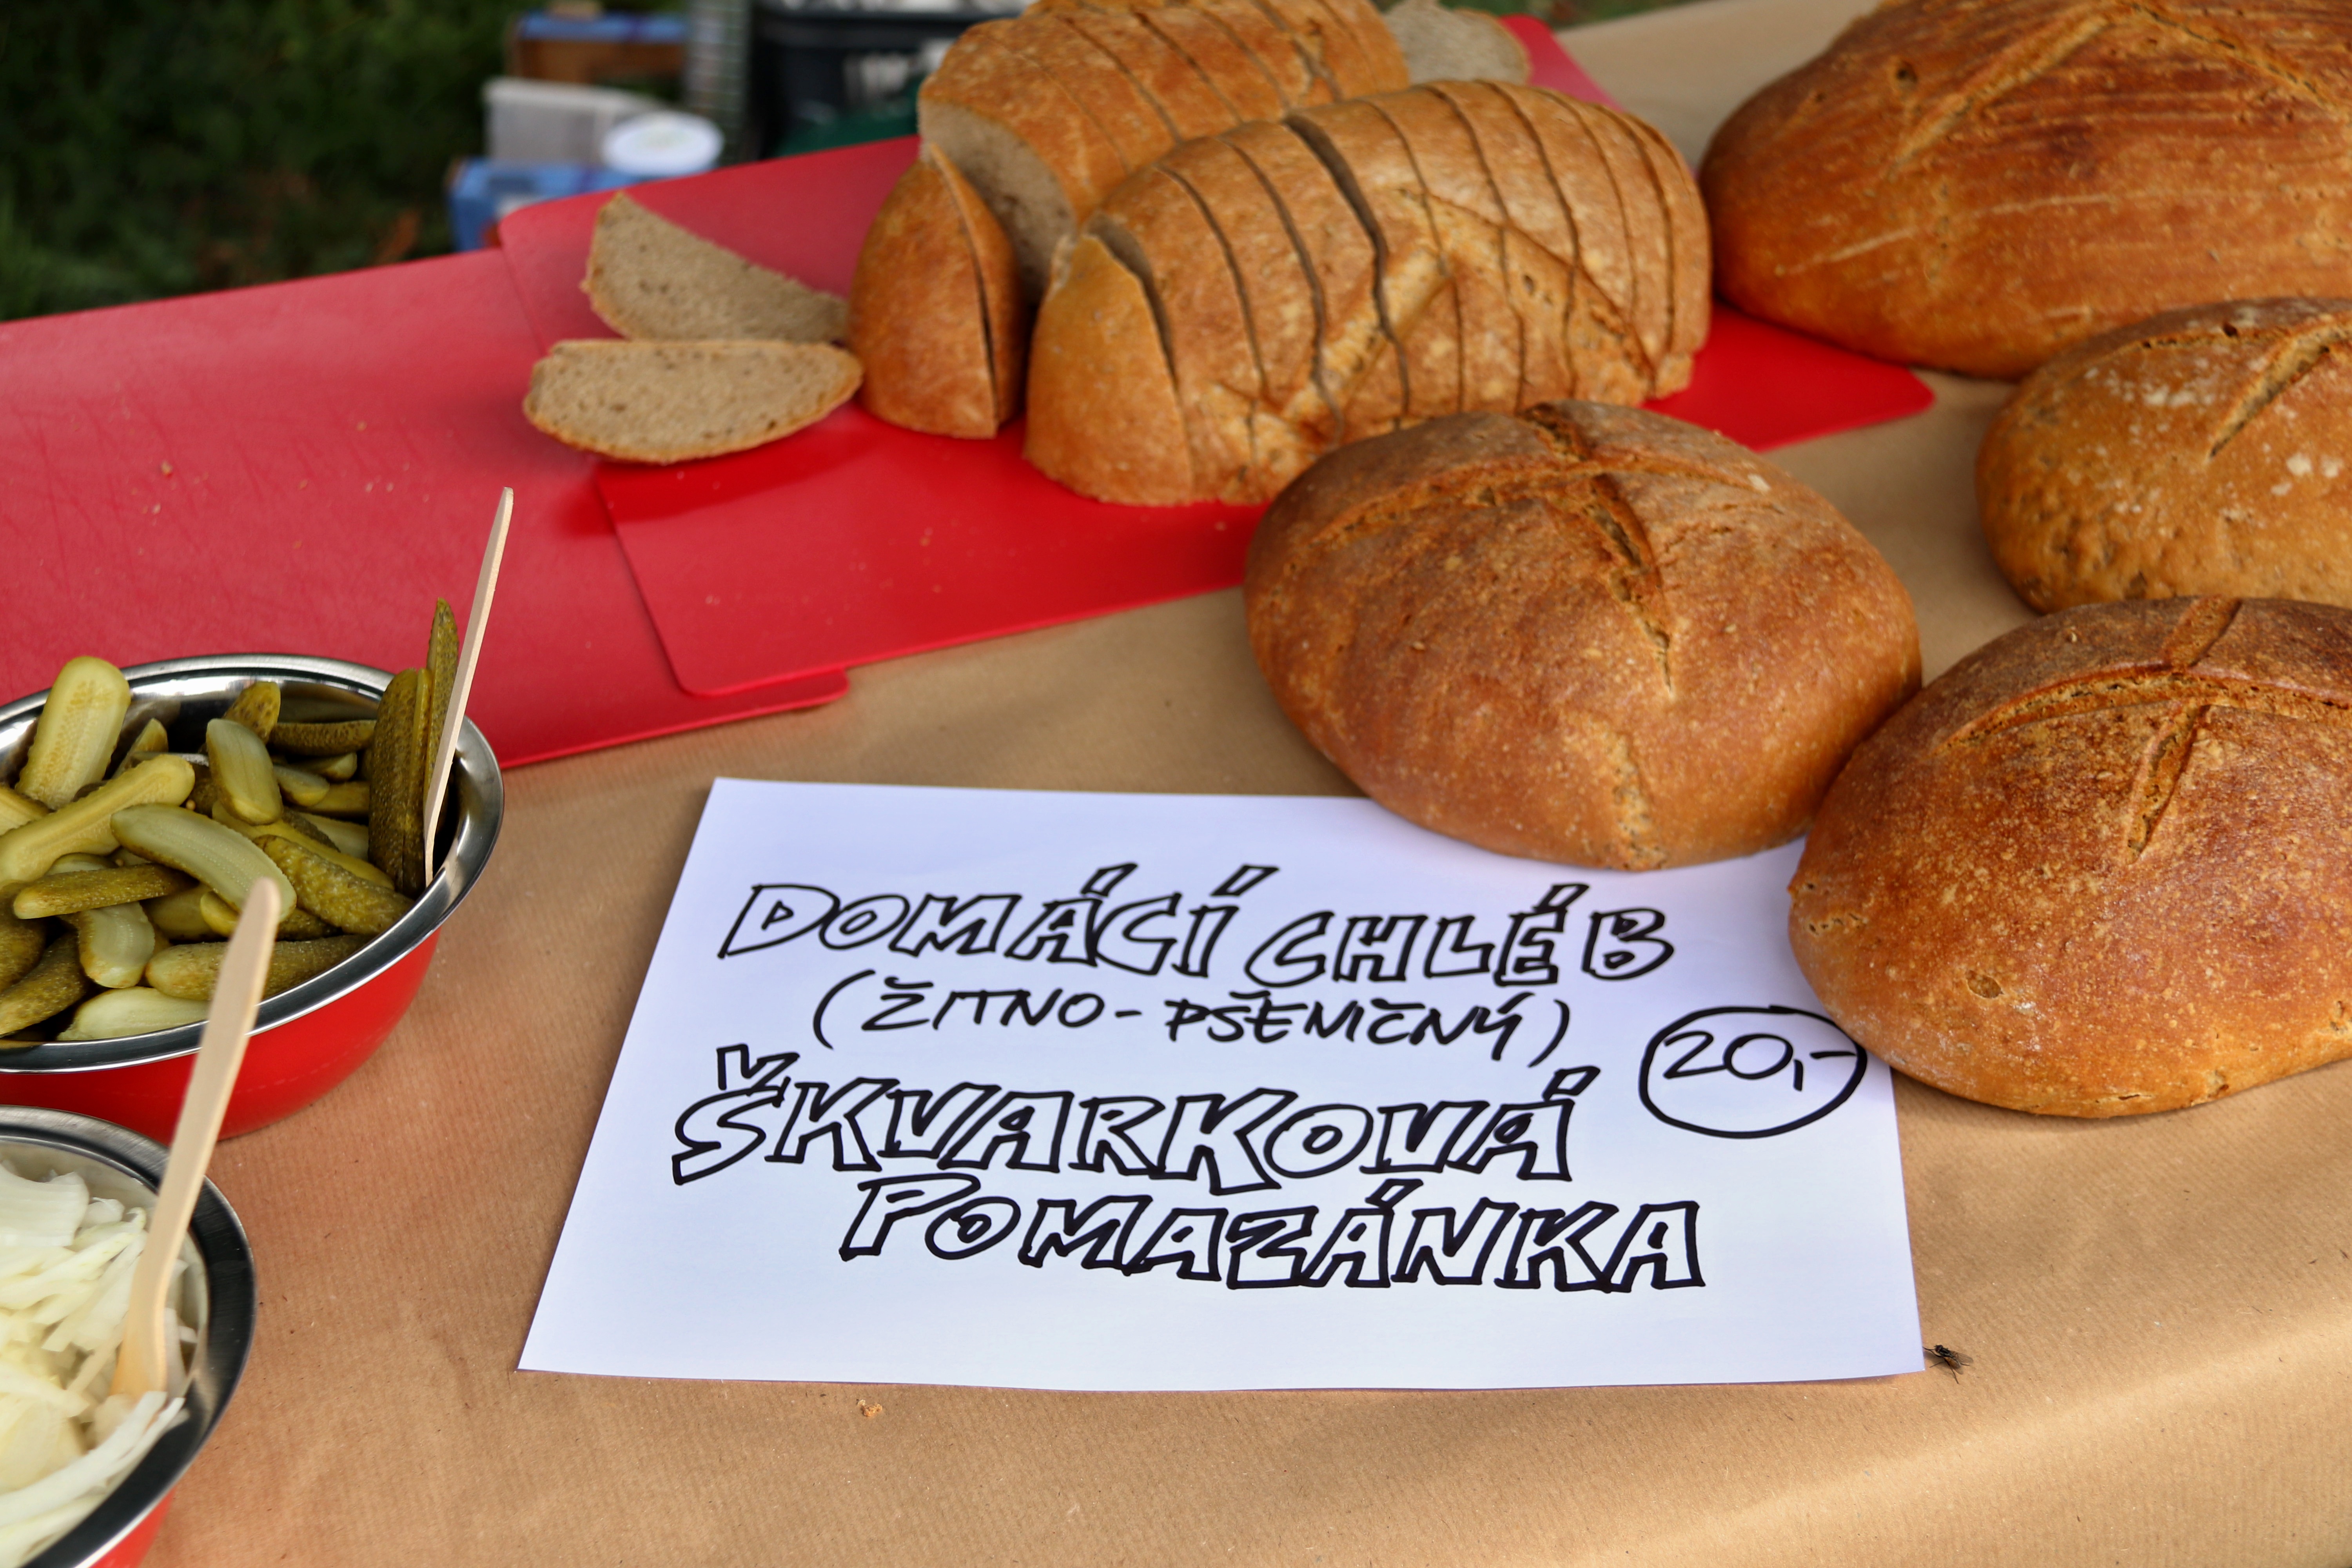 DOMÁCÍ CHLÉB
(ŽITNO-PŠENIČNÝ)
20,-
ŠKVARKOVÁ
POMAZÁNKA